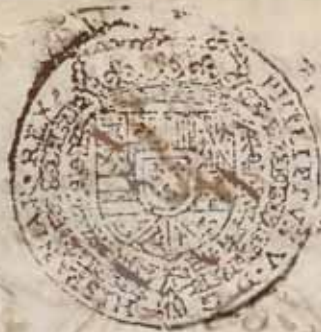 PHILIPPVS · V · D · G ·
HISPANIAR · REX ·